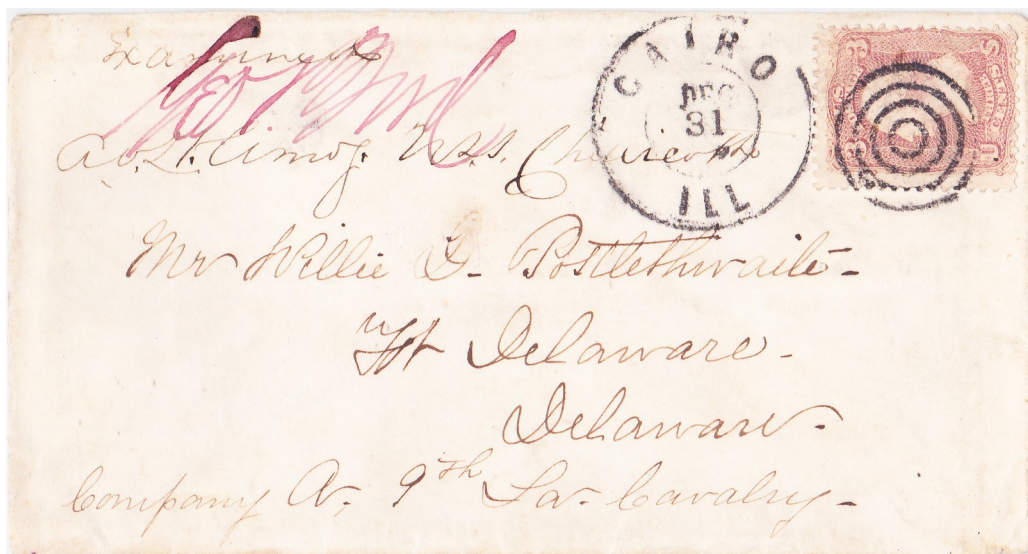 Examined
CAIRO
DEC
31
ILL
U.S.S.
Mr Willie D. Postlethwaite-
Ft Delaware-
Delaware.
Company A, 9th La. Cavalry-